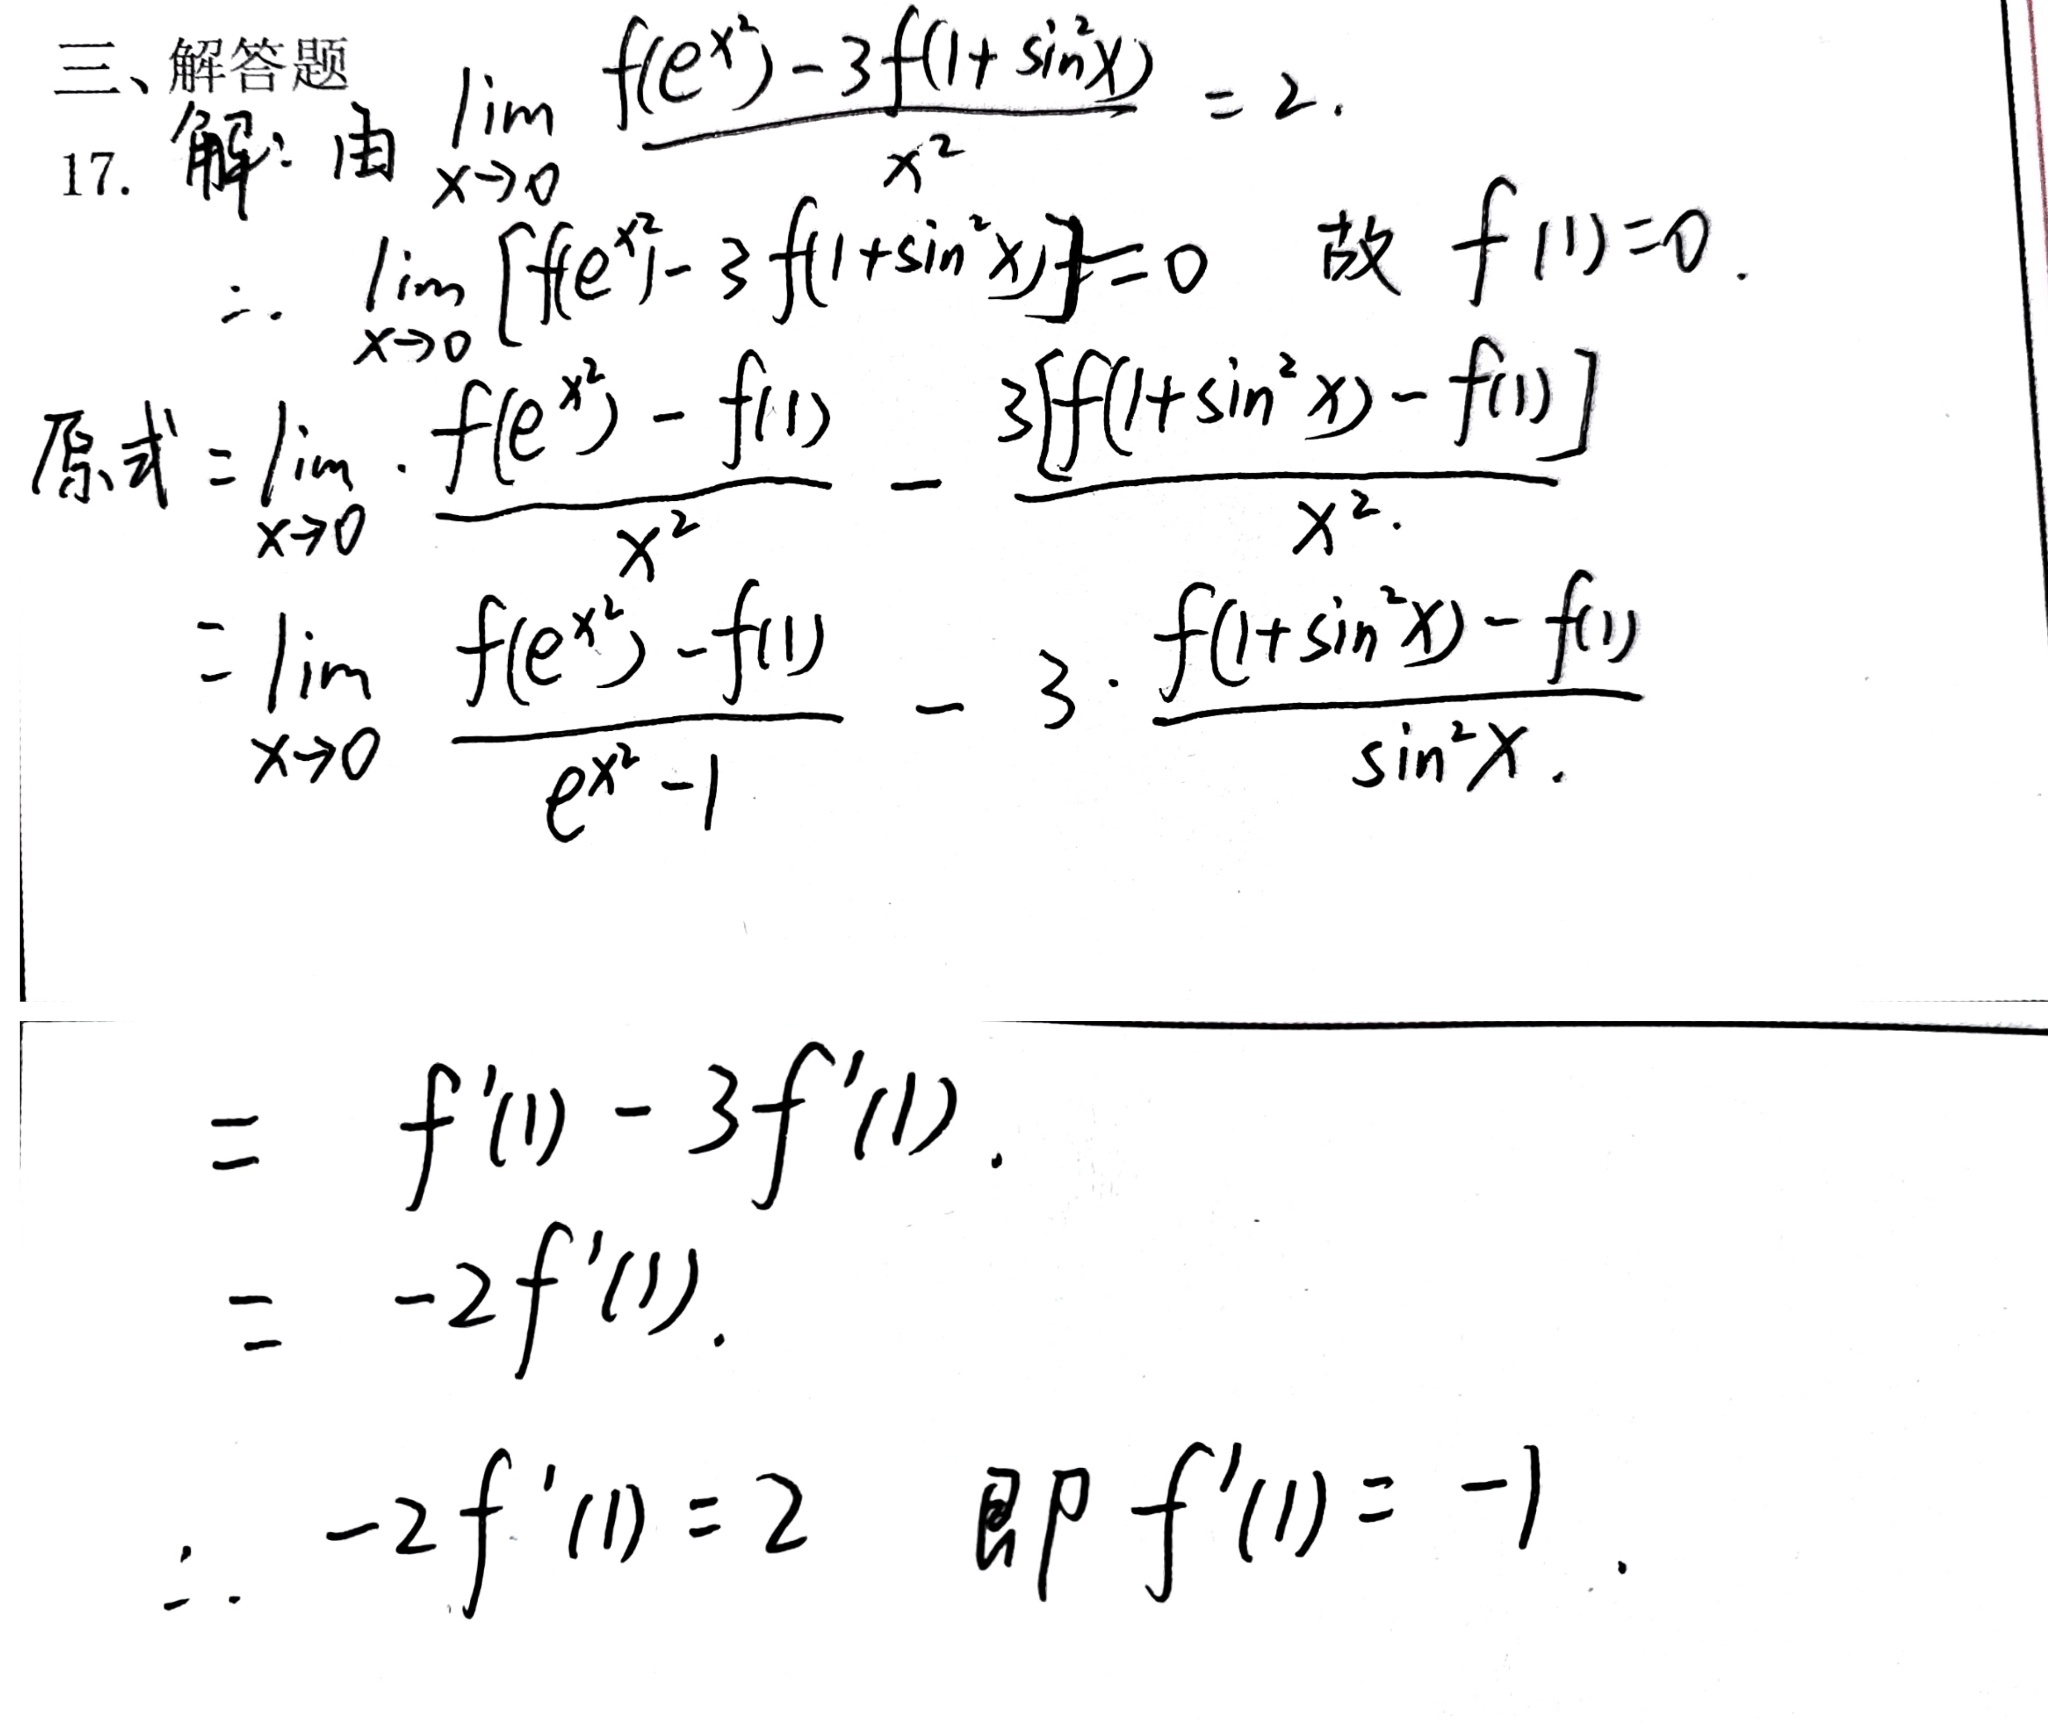 三、解答题
17. 解: 由 lim x→0 (f(e^{x²}) - 3f(1+sin²x)) / x² = 2.
∴ lim x→0 [f(e^{x²}) - 3f(1+sin²x)] = 0 故 f(1)=0.
原式 = lim x→0 · (f(e^{x²}) - f(1)) / x² - 3[f(1+sin²x) - f(1)] / x².
= lim x→0 (f(e^{x²}) - f(1)) / (e^{x²} - 1) - 3 · (f(1+sin²x) - f(1)) / sin²x.
= f'(1) - 3f'(1).
= -2f'(1).
∴ -2f'(1) = 2 即 f'(1) = -1.